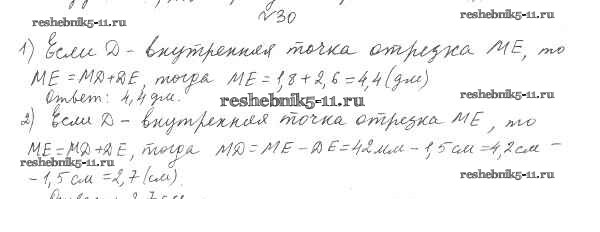 №30
reshebnik5-11.ru
reshebnik5-11.ru
1) Если D - внутренняя точка отрезка ME, то
ME = MD + DE, тогда ME = 1,8 + 2,6 = 4,4 (дм)
Ответ: 4,4 дм.
reshebnik5-11.ru
reshebnik5-11.ru
2) Если D - внутренняя точка отрезка ME, то
ME = MD + DE, тогда MD = ME - DE = 42 мм - 1,5 см = 4,2 см -
reshebnik5-11.ru
- 1,5 см = 2,7 (см).
reshebnik5-11.ru